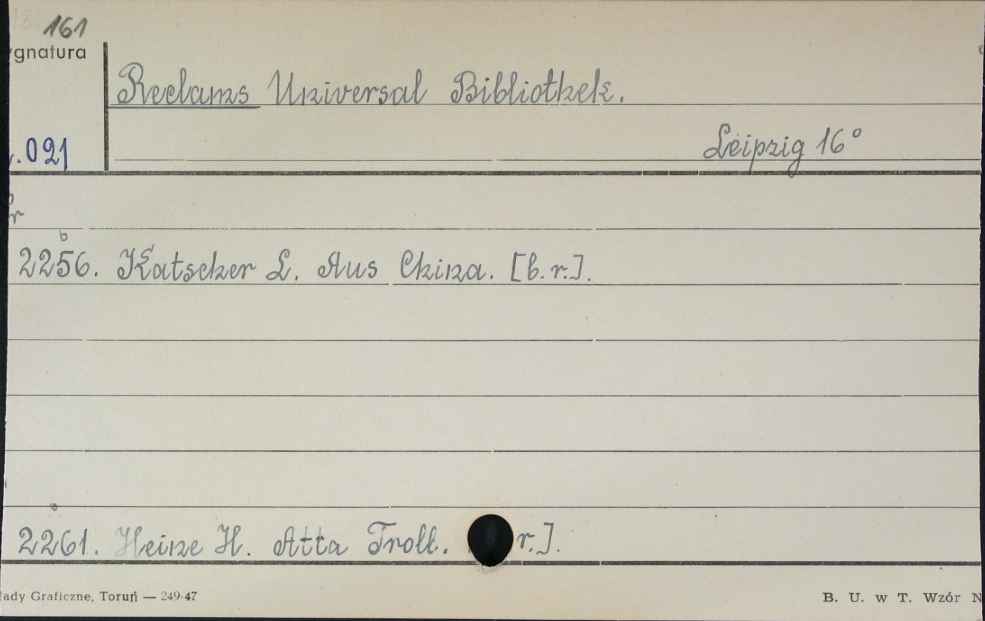 161
ygnatura
Reclams Universal Bibliothek.
.091
Leipzig 16°
2256. Katscher L. Aus China. [b.r.].
2261. Heine H. Atta Troll. r.].
łady Graficzne, Toruń — 249-47
B. U. w T. Wzór N